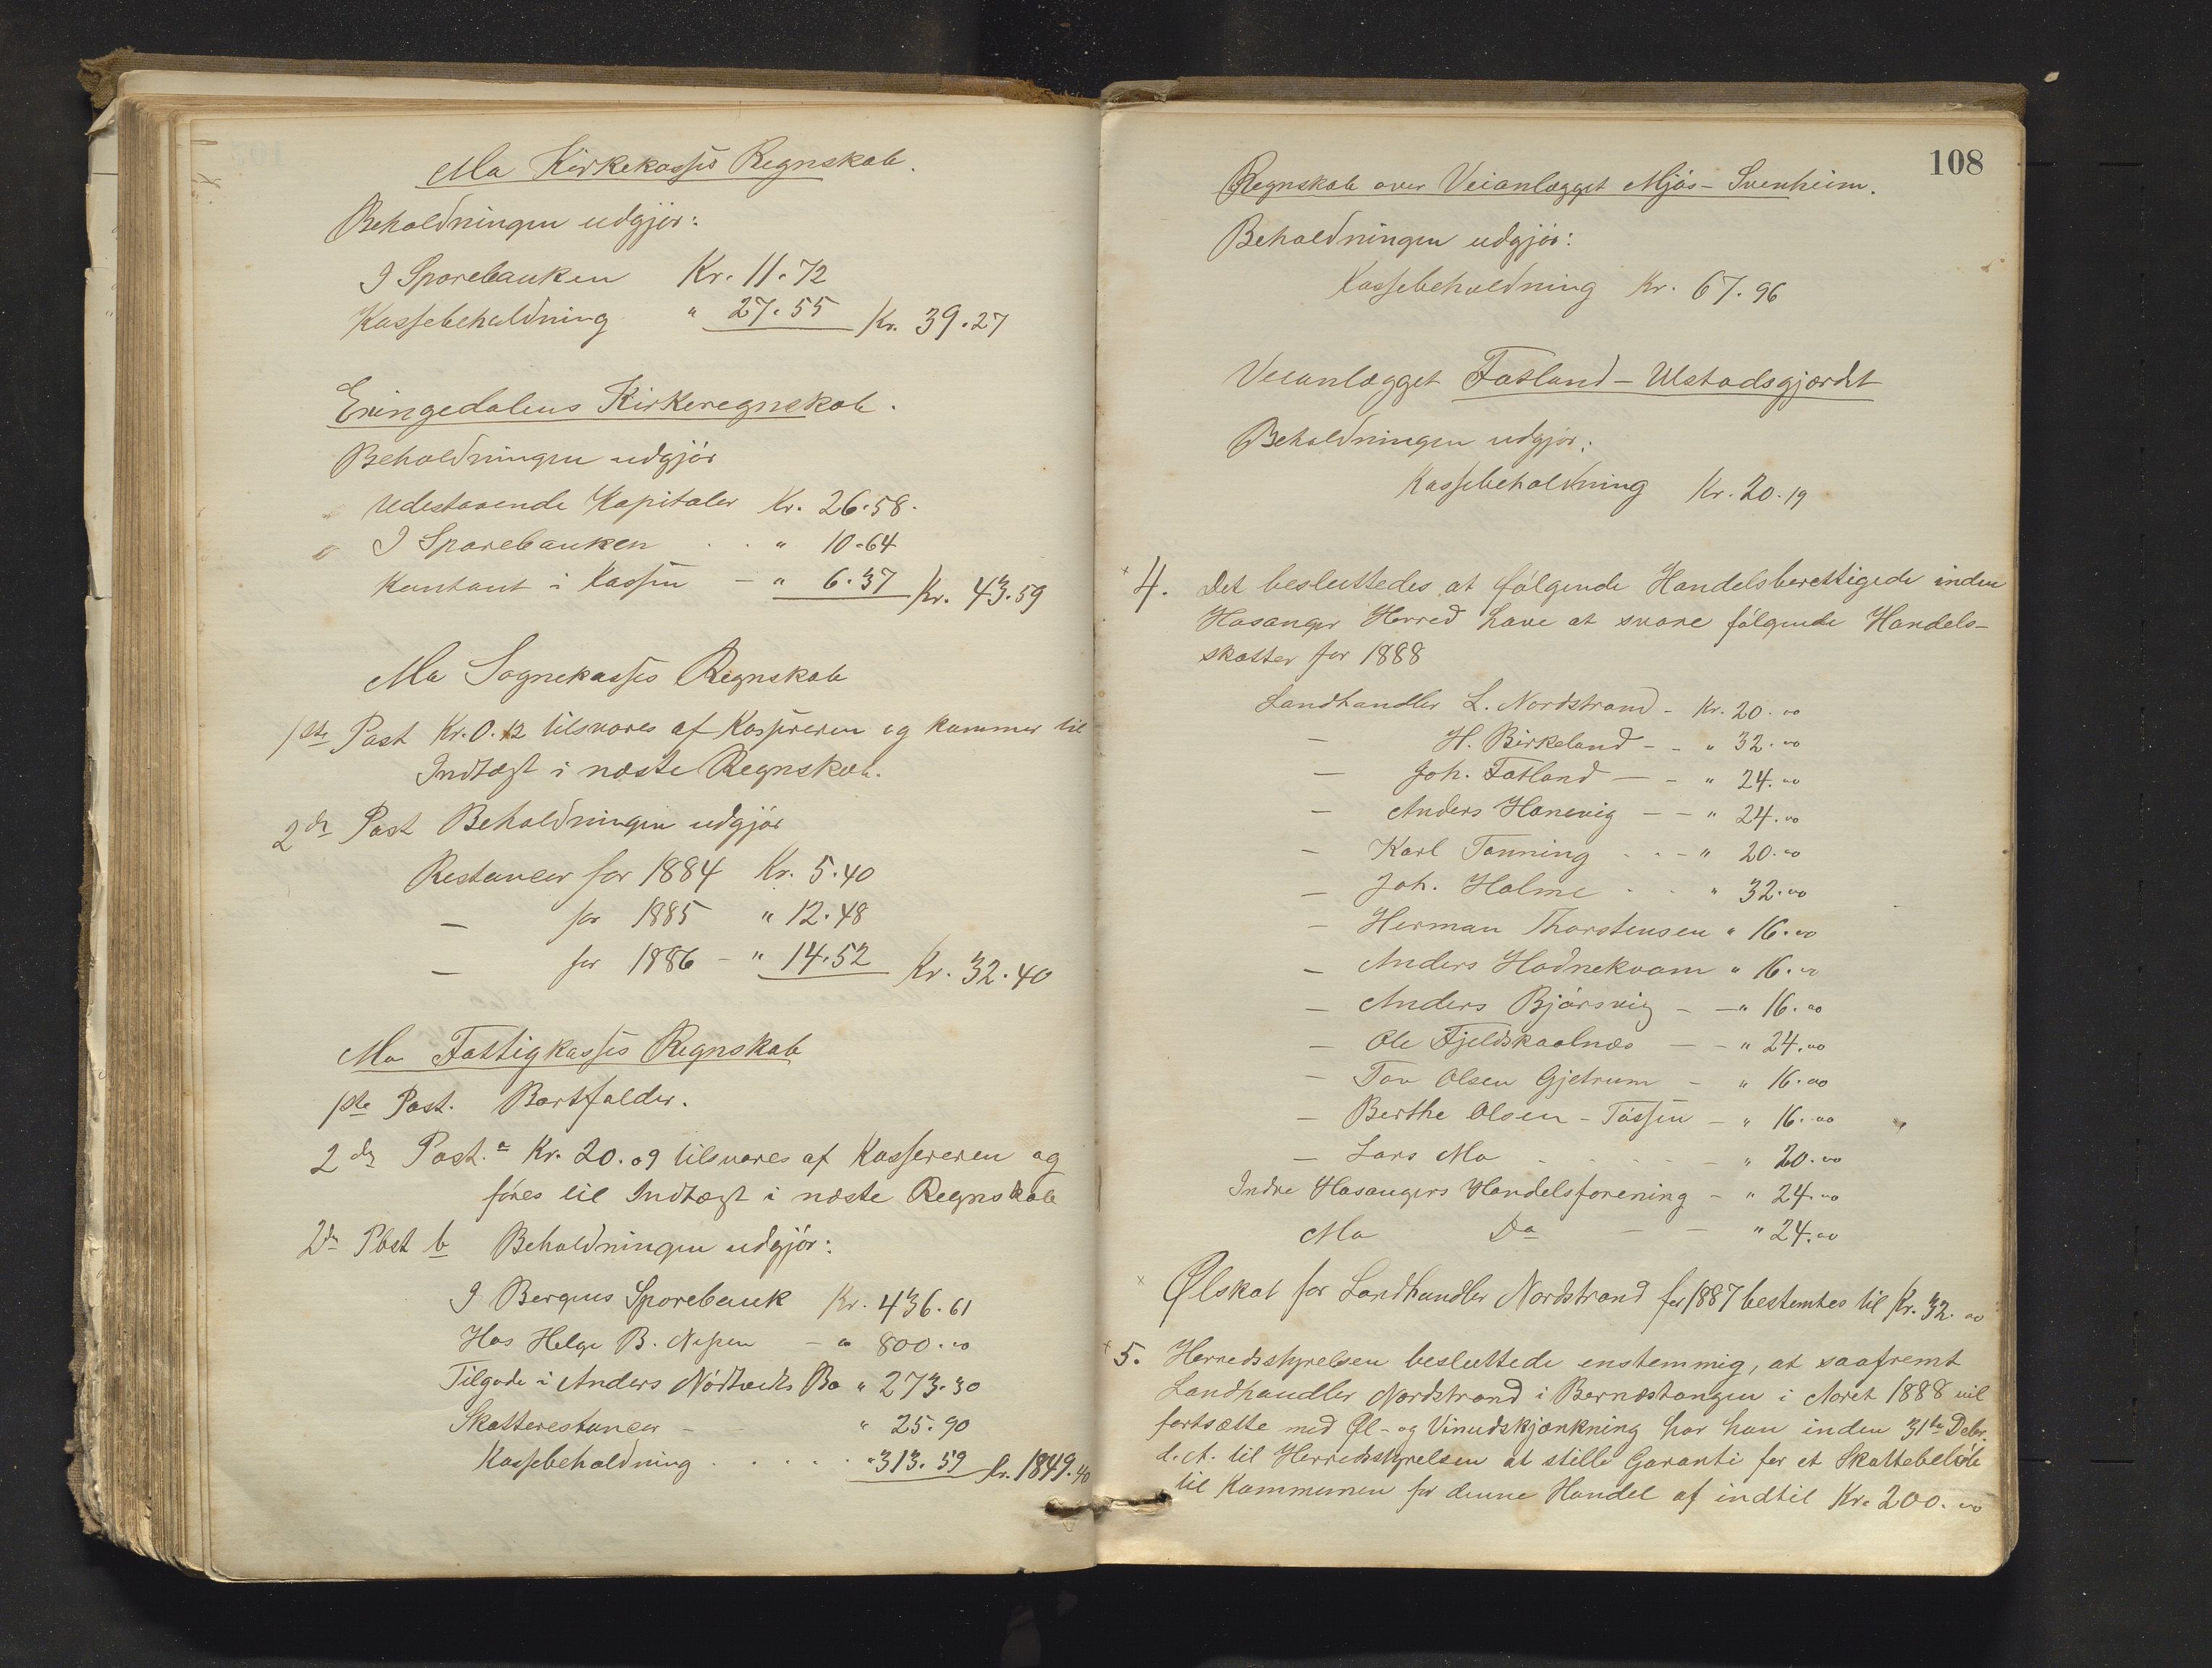 Mo Kirkekasses Regnskab.
Beholdningen udgjør:
I Sparebanken Kr. 11.72
Kassebeholdning " 27.55 Kr. 39.27
Exingedalens Kirkeregnskab.
Beholdningen udgjør
Udestaaende Kapitaler Kr. 26.58.
I Sparebanken . . " 10.64
Kontant i Kassen - " 6.37 Kr. 43.59
Mo Sognekasses Regnskab
1ste Post Kr. 0.12 tilsvares af Kassereren og kommer til
Indtægt i næste Regnskab.
2den Post Beholdningen udgjør
Restancer for 1884 Kr. 5.40
— for 1885 " 12.48
— for 1886 - " 14.52 Kr. 32.40
Mo Fattigkasses Regnskab
1ste Post. Bortfalder.
2den Post. a Kr. 20.09 tilsvares af Kassereren og
føres til Indtægt i næste Regnskab
2den Post b Beholdningen udgjør:
I Bergens Sparebank Kr. 436.61
Hos Helge B. Nesse - " 800.00
Tilgode i Anders Nödtvedts Bo " 273.30
Skatterestancer - " 25.90
Kassebeholdning . . . . . " 313.59 Kr. 1849.40
108
Regnskab over Veianlægget Mjøs - Svenheim.
Beholdningen udgjør:
Kassebeholdning Kr. 67.96
Veianlægget Fatland - Ulstadsgjærdet
Beholdningen udgjør:
Kassebeholdning Kr. 20.19
4. Det besluttedes at følgende Handelsberettigede inden
Hosanger Herred have at svare følgende Handels-
skatter for 1888
Landhandler L. Nordstrand - Kr. 20.00
— H. Birkeland - - " 32.00
— Joh. Fatland — - " 24.00
— Anders Hanevig - - " 24.00
— Karl Tanning . . - " 20.00
— Joh. Holme . . " 32.00
— Herman Thorstensen " 16.00
— Anders Hodnekvam " 16.00
— Anders Bjørsvig - - " 16.00
— Ole Fjeldskaalnæs - - " 24.00
— Tov Olsen Gjetrum - " 16.00
— Berthe Olsen - Tøssen - " 16.00
— Lars Mo . . . . - " 20.00
Indre Hosangers Handelsforening - " 24.00
Mo Do — — " 24.00
Ølskat for Landhandler Nordstrand for 1887 bestemtes til Kr. 32.00
5. Herredsstyrelsen besluttede enstemmig, at saafremt
Landhandler Nordstrand i Bernæstangen i Aaret 1888 vil
fortsætte med Øl- og Vinudskjænkning har han inden 31te Debr.
d.A. til Herredsstyrelsen at stille Garanti for et Skattebeløb
til Kommunen for denne Handel af indtil Kr. 200.00